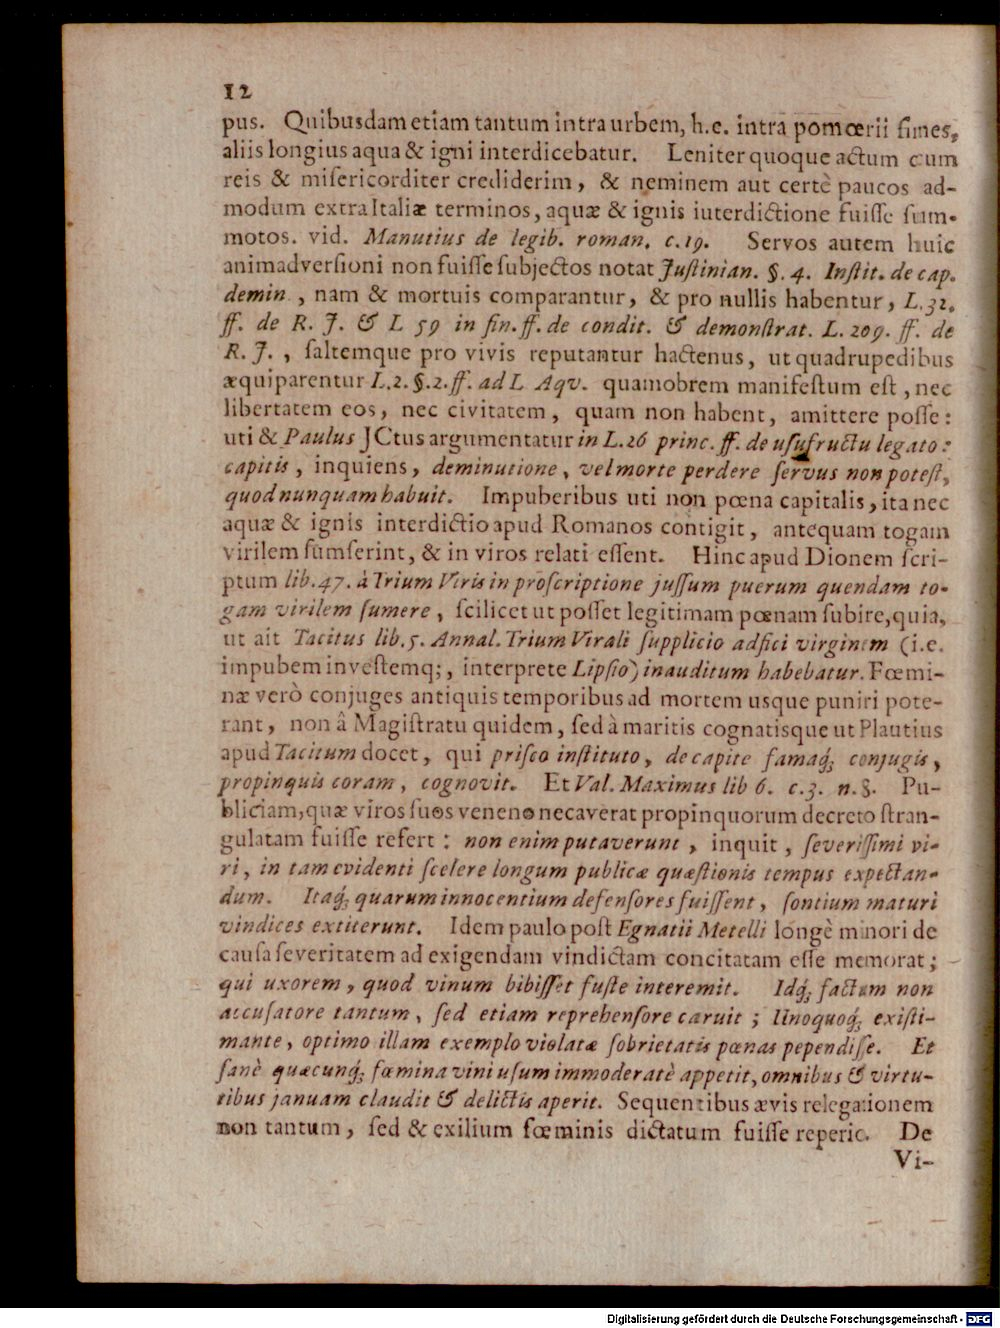 12
pus. Quibusdam etiam tantum intra urbem, h.e. intra pomœrii fines,
aliis longius aqua & igni interdicebatur. Leniter quoque actum cum
reis & miſericorditer crediderim, & neminem aut certè paucos ad-
modum extra Italiæ terminos, aquæ & ignis iuterdictione fuiſſe ſum-
motos. vid. Manutius de legib. roman. c. 19. Servos autem huic
animadverſioni non fuiſſe ſubjectos notat Juſtinian. §. 4. Inſtit. de cap.
demin., nam & mortuis comparantur, & pro nullis habentur, L. 32.
ff. de R. J. & L 59 in fin. ff. de condit. & demonſtrat. L. 209. ff. de
R. J., ſaltemque pro vivis reputantur hactenus, ut quadrupedibus
æquiparentur L. 2. §. 2. ff. ad L Aqv. quamobrem manifeſtum eſt, nec
libertatem eos, nec civitatem, quam non habent, amittere poſſe:
uti & Paulus JCtus argumentatur in L. 26 princ. ff. de uſufructu legato:
capitis, inquiens, deminutione, vel morte perdere ſervus non poteſt,
quod nunquam habuit. Impuberibus uti non pœna capitalis, ita nec
aquæ & ignis interdictio apud Romanos contigit, antequam togam
virilem ſumſerint, & in viros relati eſſent. Hinc apud Dionem ſcri-
ptum lib. 47. à Trium Viris in proſcriptione juſſum puerum quendam to-
gam virilem ſumere, ſcilicet ut poſſet legitimam pœnam ſubire, quia,
ut ait Tacitus lib. 5. Annal. Trium Virali ſupplicio adfici virginem (i.e.
impubem inveſtemq;, interprete Lipſio) inauditum habebatur. Fœmi-
næ verò conjuges antiquis temporibus ad mortem usque puniri pote-
rant, non â Magiſtratu quidem, ſed à maritis cognatisque ut Plautius
apud Tacitum docet, qui priſco inſtituto, de capite famaq; conjugis,
propinquis coram, cognovit. Et Val. Maximus lib 6. c. 3. n. 8. Pu-
bliciam, quæ viros ſuos veneno necaverat propinquorum decreto ſtran-
gulatam fuiſſe refert: non enim putaverunt, inquit, ſeveriſſimi vi-
ri, in tam evidenti ſcelere longum publicæ quæſtionis tempus expectan-
dum. Itaq; quarum innocentium defenſores fuiſſent, ſontium maturi
vindices extiterunt. Idem paulo poſt Egnatii Metelli longè minori de
cauſa ſeveritatem ad exigendam vindictam concitatam eſſe memorat;
qui uxorem, quod vinum bibiſſet fuſte interemit. Idq; factum non
accuſatore tantum, ſed etiam reprehenſore caruit; Unoquoq; exiſti-
mante, optimo illam exemplo violatæ ſobrietatis pœnas pependiſſe. Et
ſanè quæcunq; fœmina vini uſum immoderatè appetit, omnibus & virtu-
tibus januam claudit & delictis aperit. Sequentibus ævis relegationem
non tantum, ſed & exilium fœminis dictatum fuiſſe reperio. De
Vi-
Digitalisierung gefördert durch die Deutsche Forschungsgemeinschaft - DFG